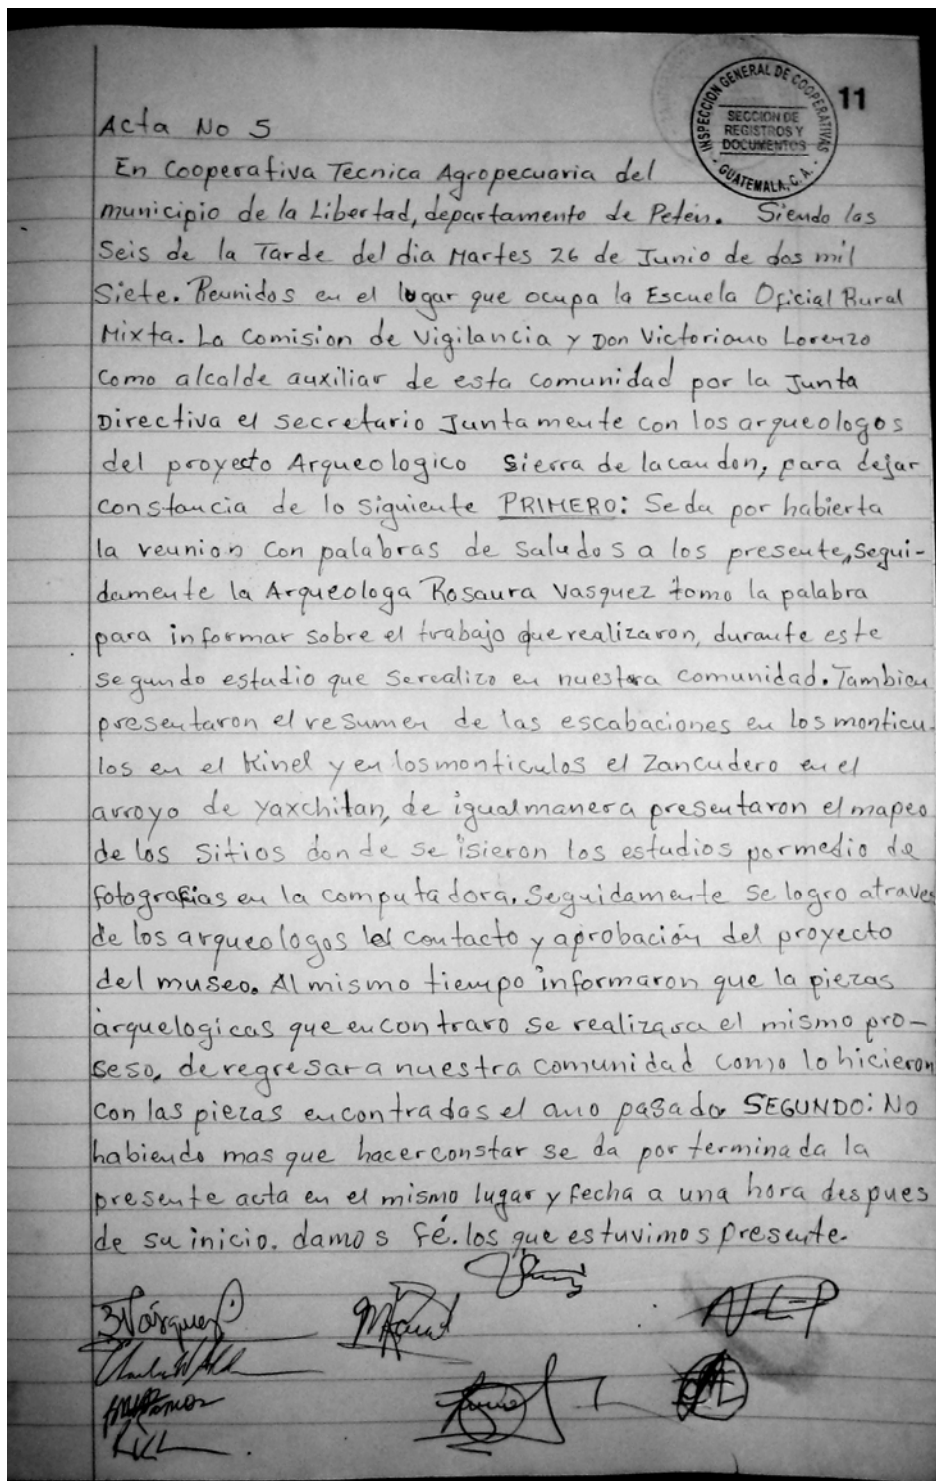 11
INSPECCION GENERAL DE COOPERATIVAS
SECCION DE
REGISTROS Y
DOCUMENTOS
GUATEMALA, C.A.
Acta No 5
En Cooperativa Tecnica Agropecuaria del
municipio de la Libertad, departamento de Petén. Siendo las
Seis de la Tarde del dia Martes 26 de Junio de dos mil
Siete. Reunidos en el lugar que ocupa la Escuela Oficial Rural
Mixta. La Comision de Vigilancia y Don Victoriano Lorenzo
Como alcalde auxiliar de esta comunidad por la Junta
Directiva el secretario Juntamente con los arqueologos
del proyecto Arqueologico Sierra de lacandon, para dejar
constancia de lo siguiente PRIMERO: Se da por habierta
la reunion con palabras de saludos a los presente, Segui-
damente la Arqueologa Rosaura Vasquez tomo la palabra
para informar sobre el trabajo que realizaron, durante este
segundo estudio que serealizo en nuestra comunidad. Tambien
presentaron el resumen de las escabaciones en los monticu-
los en el Kinel y en los monticulos el Zancudero en el
arroyo de yaxchitan, de igualmanera presentaron el mapeo
de los Sitios donde se isieron los estudios pormedio de
fotografias en la computadora. Seguidamente se logro atraves
de los arqueologos el contacto y aprobación del proyecto
del museo. Al mismo tiempo informaron que la piezas
arquelogicas que encontraro se realizara el mismo pro-
seso, de regresar a nuestra comunidad como lo hicieron
con las piezas encontradas el ano pasado SEGUNDO: No
habiendo mas que hacer constar se da por terminada la
presente acta en el mismo lugar y fecha a una hora despues
de su inicio. damos fé. los que estuvimos presente.
Vásquez